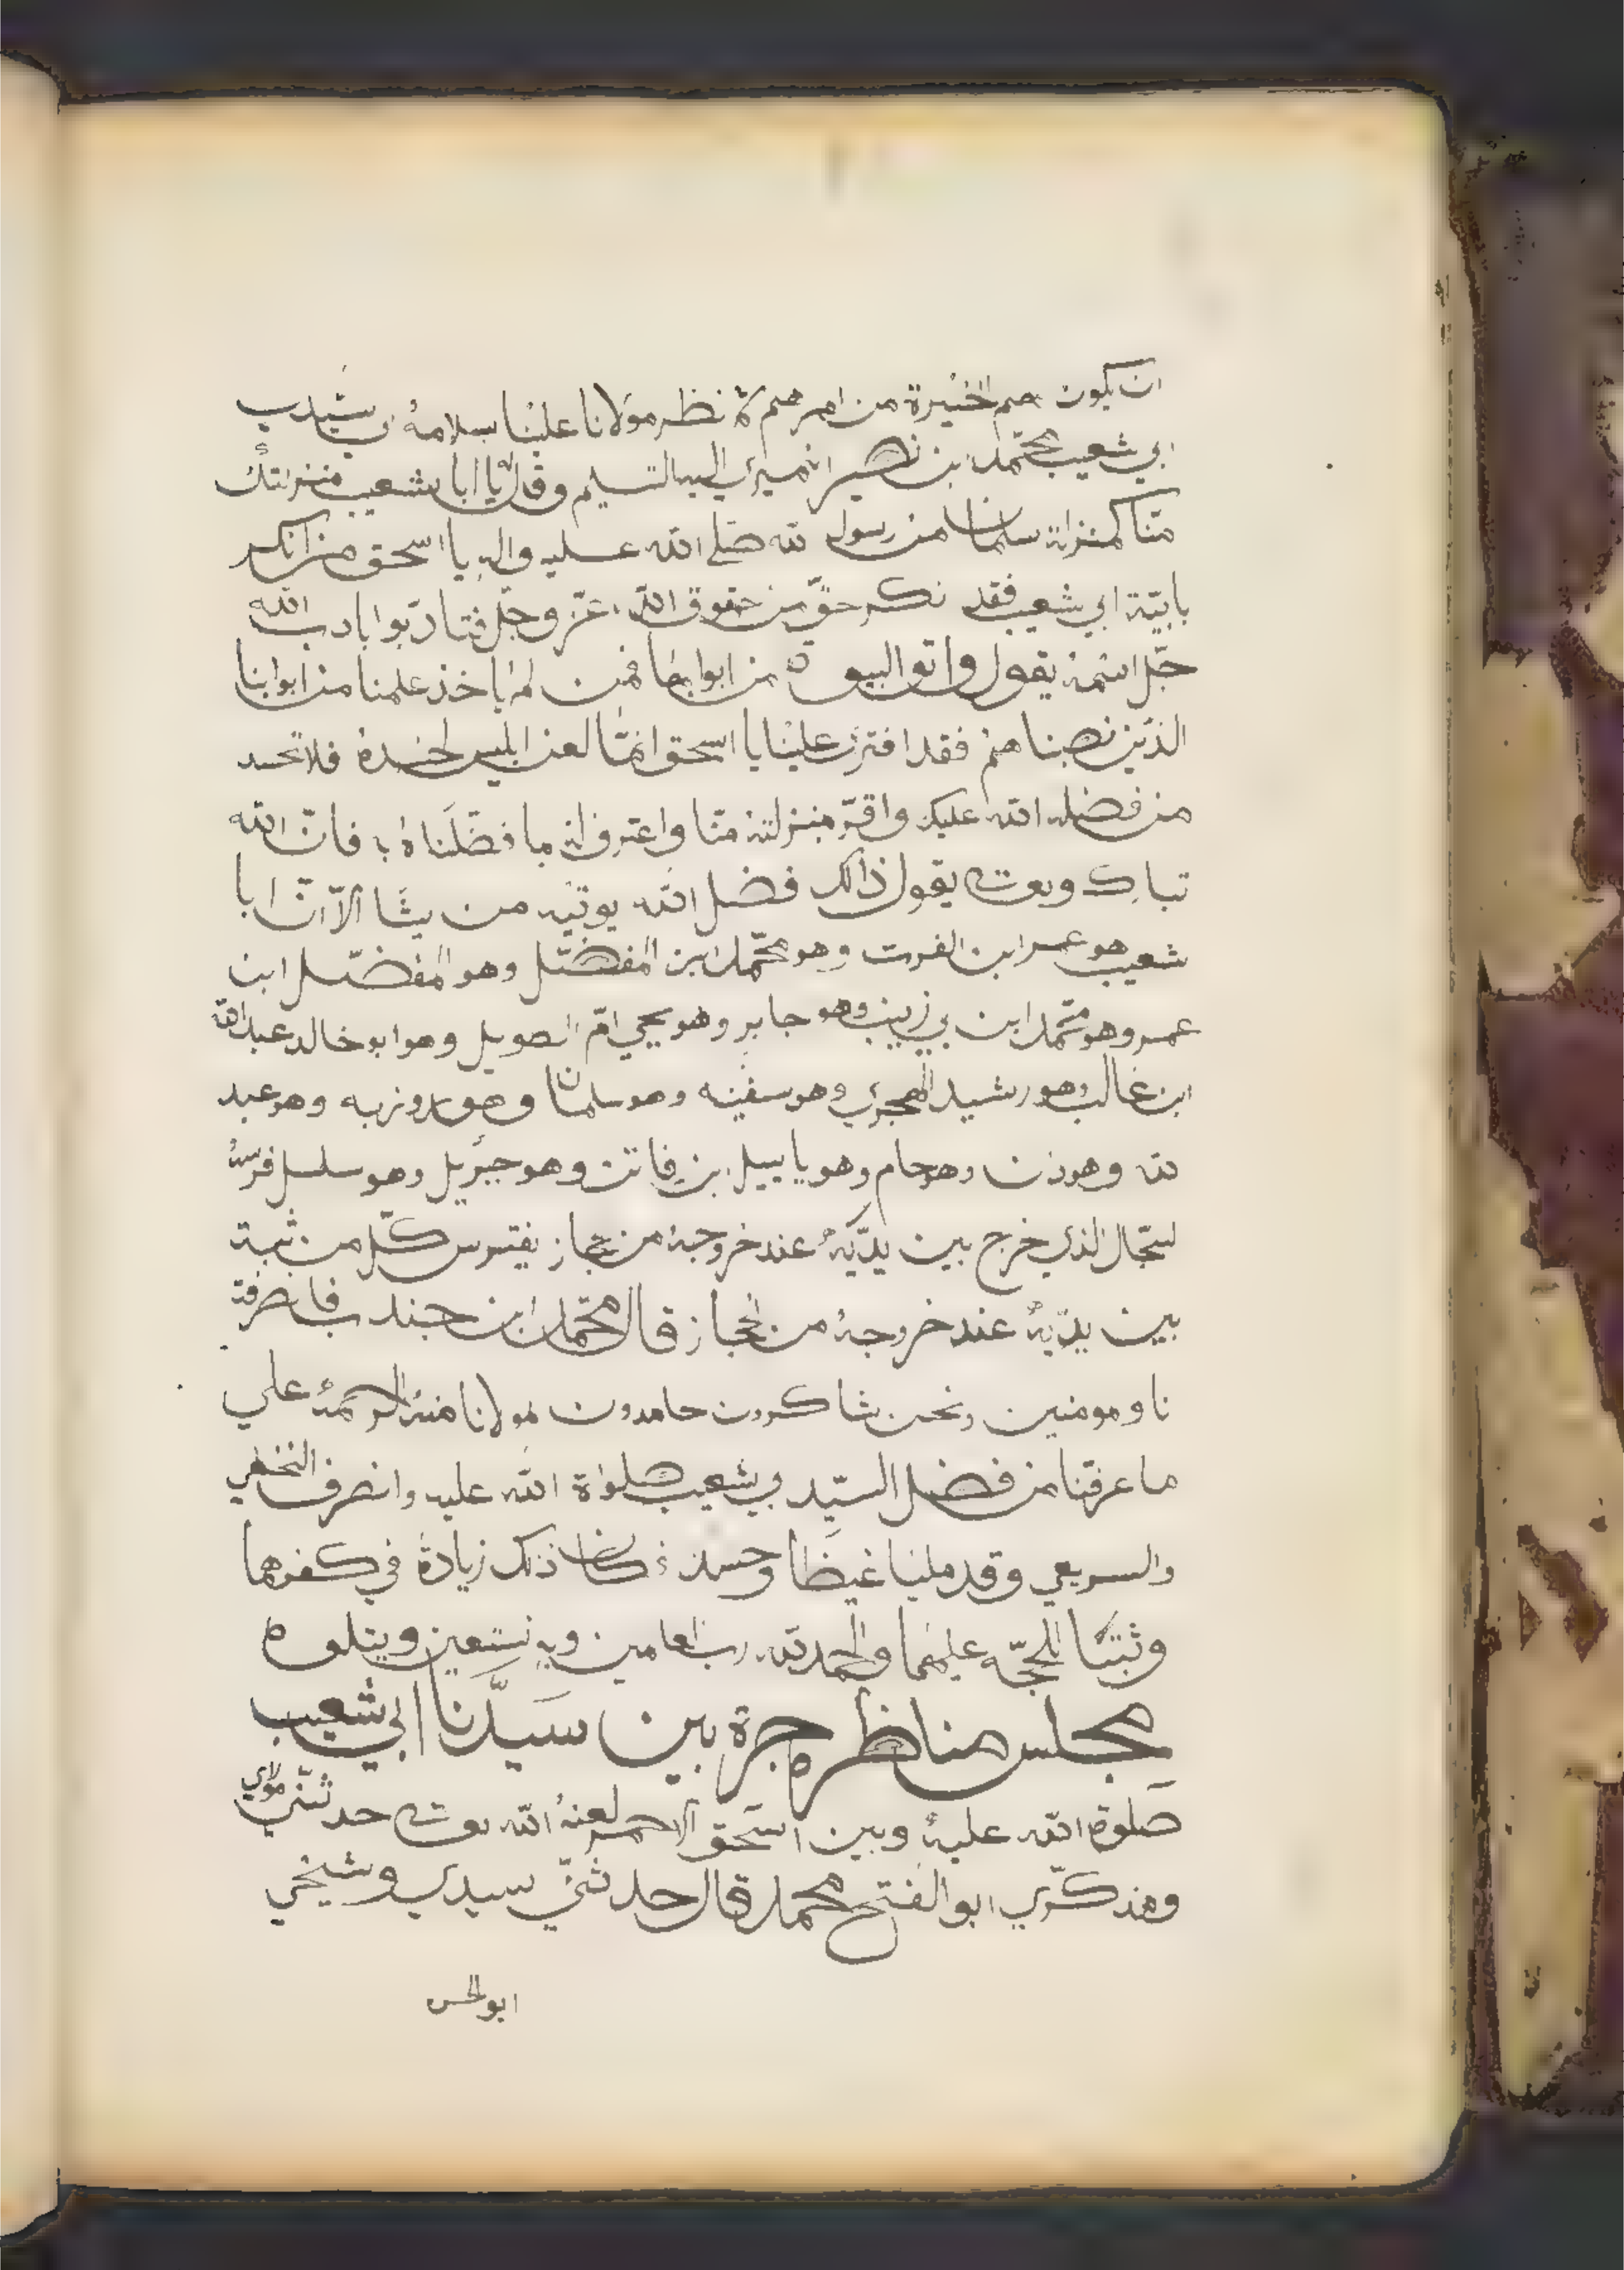 ان يكون لهم الخيرة من امرهم ثم نظر مولانا علينا سلامه الى سيدي
ابي شعيب محمد ابن نصير النميري اليه التسليم وقال يا ابا شعيب منزلتك
منّا كمنزلة سلمان من رسول الله صلى الله عليه واله يا اسحق من انكر
بابيّة ابي شعيب فقد نكر حقّ من حقوق الله عزّ وجلّ فتادّبوا بادب الله
جلّ اسمه يقول واتو البيوت من ابوابها فمن لم ياخذ علمنا من ابوابنا
الذين نصبناهم فقد افترى علينا يا اسحق انما لعن ابليس لحسده فلا تحسد
من فضله الله عليك واقرّ بمنزلته منّا واعترف له بما فضّلناه به فانّ الله
تبارك وتعالى يقول ذالك فضل الله يوتيه من يشا الاّ انّ ابا
شعيب هو عمر ابن الفرت وهو محمّد ابن المفضّل وهو المفضّل ابن
عمر وهو محمّد ابن بي زينب وهو جابر وهو يحيى امّ الطويل وهو ابو خالد عبد الله
ابن غالب وهو رشيد الهجري وهو سفينه وهو سلمان وهو روزبه وهو عبد
لله وهو دن وهو حام وهو ياييل بن فاتن وهو جبريل وهو سلسل فرس
لتحال الذي خرج بين يدّيه عند خروجه من حجاز يفترس كلّ من ثبة
بين يدّيه عند خروجه من الحجاز قال محمّد ابن جندب فانصرفة
نا ومومنين ونحن شاكرون حامدون لمولانا منه الرحمة على
ما عرفنا من فضل السيّد بي شعيب صلواة الله عليه وانصرف النخعي
والسريعي وقد مليا غيظا وحسد كان ذلك زيادة في كفرهما
وثبتا للحجّه عليهما والحمد لله رب العامين وبه نستعين ويتلوه
مجلس مناظرة جرة بين سيّدنا ابي شعيب
صلوة الله عليه وبين اسحق الاحمر لعنه الله تعالى حدثني مولاي
ومذكّري ابو الفتح محمد قال حدثني سيدي وشيخي
ابو الحسن